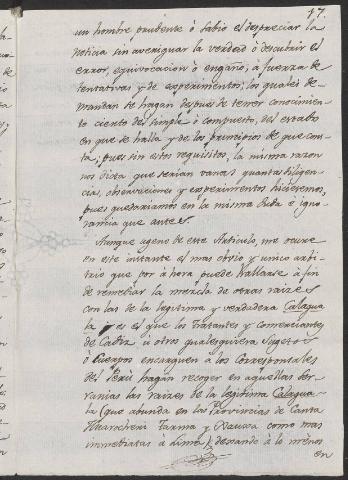 17.
un hombre prudente ò sabio el despreciar la
noticia sin averiguar la verdad ò descubrir el
error, equivocacion ò engaño, à fuerza de
tentativas y de experimentos; los quales de-
mandan se hagan despues de tener conocimien-
to cierto del simple ò compuesto, del estado
en que se halla y de los principios de que cons-
ta; pues sin estos requisitos, la misma razon
nos dicta que serian vanas quantas diligen-
cias, observaciones y experimentos hiciesemos,
pues quedariamos en la misma duda è igno-
rancia que antes.
Aunque ageno de este Articulo, me ocurre
en este instante el mas obvio y unico arbi-
trio que por àhora puede hallarse à fin
de remediar la mezcla de otras raizes
con las de la legitima y verdadera Calagua-
la y es el que los Tratantes y Comerciantes
de Cadiz ù otros qualesquiera Sugetos
ò Cuerpos encarguen à los Corresponsales
del Perù hagan recoger en aquellas Ser-
ranias las raizes de la legitima Calagua-
la (que abunda en las Provincias de Canta
Huarocheri Tarma y Xauxa como mas
immediatas à Lima) dexando à lo menos
en